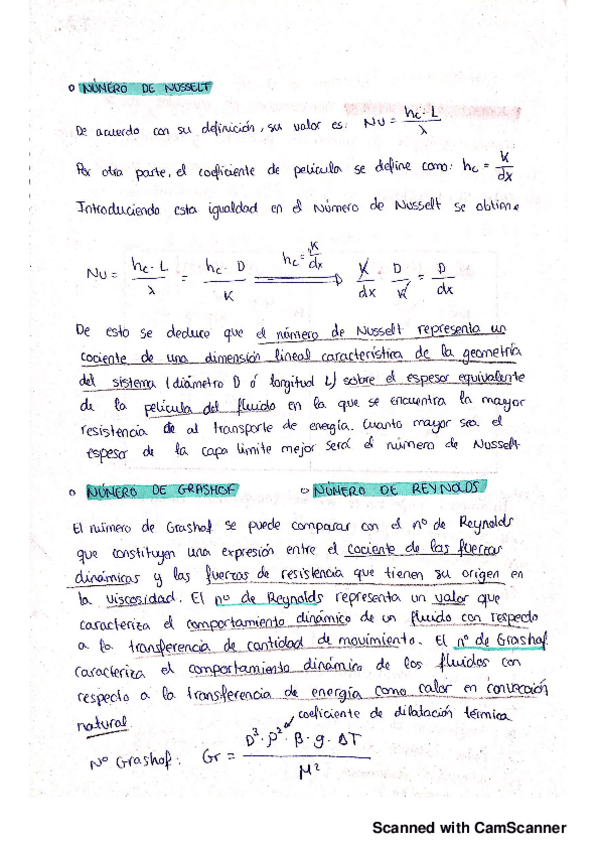 o NÚMERO DE NUSSELT
De acuerdo con su definición, su valor es: Nu = hc·L / λ
Por otra parte, el coeficiente de película se define como: hc = K / dx
Introduciendo esta igualdad en el Número de Nusselt se obtiene
Nu = hc·L / λ = hc·D / K ⟹ (hc = K/dx) K/dx · D/K = D / dx
De esto se deduce que el número de Nusselt representa un
cociente de una dimensión lineal característica de la geometría
del sistema (diámetro D ó longitud L) sobre el espesor equivalente
de la película del fluido en la que se encuentra la mayor
resistencia de al transporte de energía. Cuanto mayor sea el
espesor de la capa límite mejor será el número de Nusselt
o NÚMERO DE GRASHOF o NÚMERO DE REYNOLDS
El número de Grashof se puede comparar con el nº de Reynolds
que constituyen una expresión entre el cociente de las fuerzas
dinámicas y las fuerzas de resistencia que tienen su origen en
la viscosidad. El nº de Reynolds representa un valor que
caracteriza el comportamiento dinámico de un fluido con respecto
a la transferencia de cantidad de movimiento. El nº de Grashof
caracteriza el comportamiento dinámico de los fluidos con
respecto a la transferencia de energía como calor en convección
natural.
coeficiente de dilatación térmica
Nº Grashof: Gr = D³·ρ²·β·g·ΔT / M²
Scanned with CamScanner